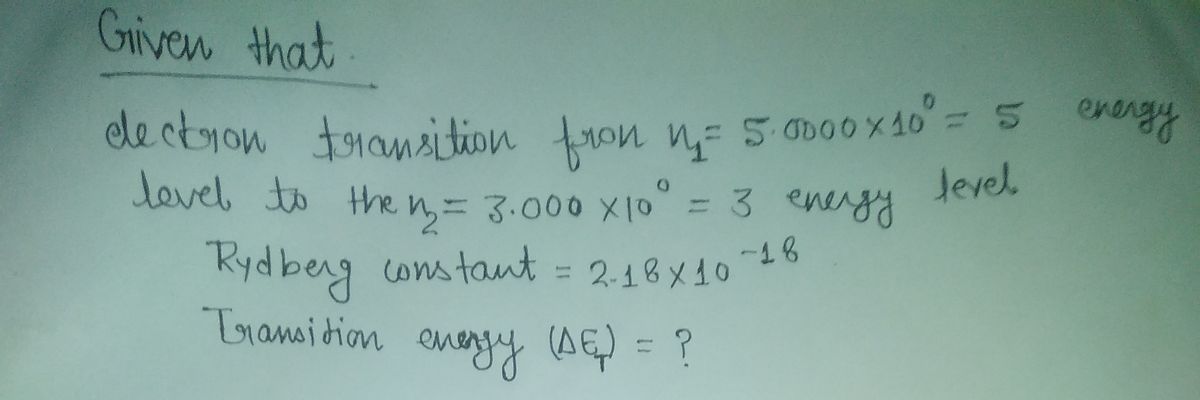 Given that.
electron transition fron n₁ = 5.0000 × 10⁰ = 5 energy
level to the n₂ = 3.000 × 10⁰ = 3 energy level
Rydberg constant = 2.18 × 10⁻¹⁸
Transition energy (ΔE_T) = ?